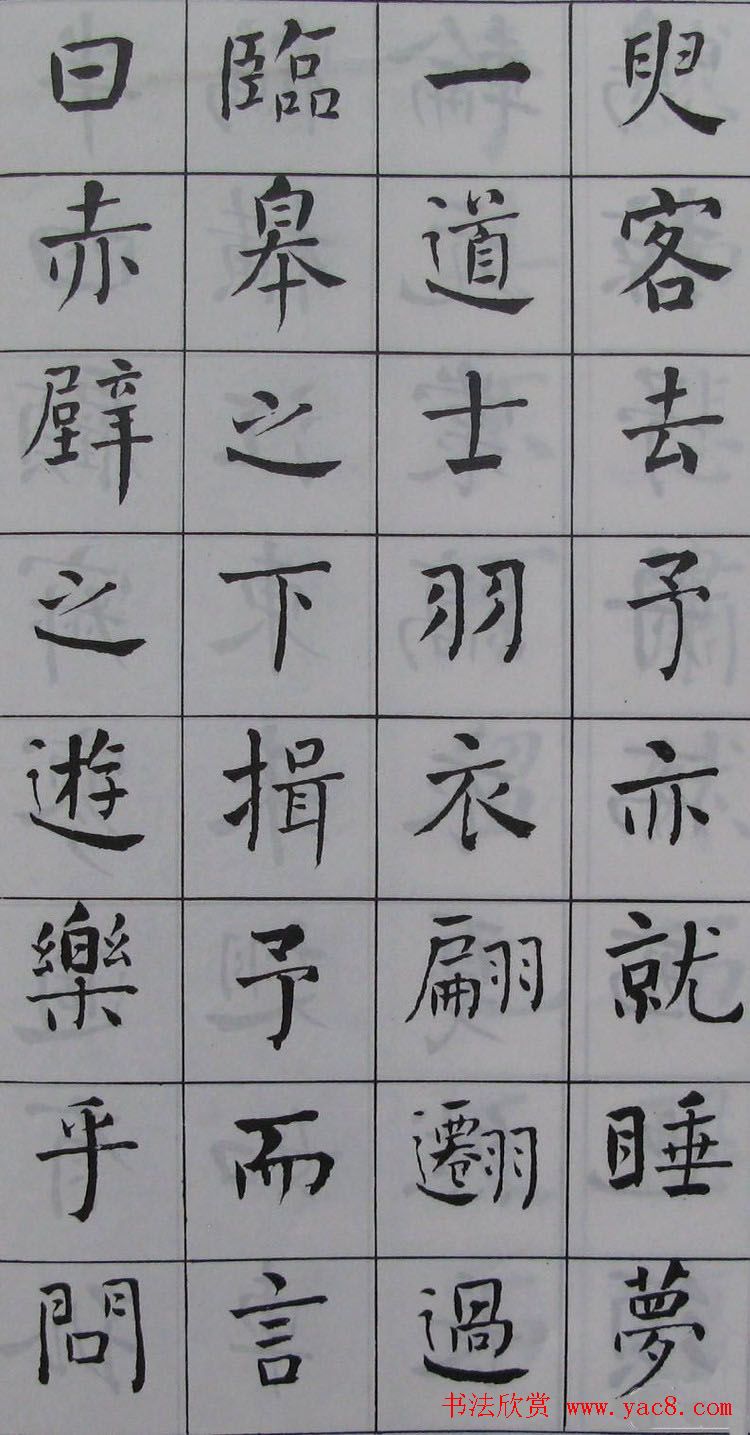 臾客去予亦就睡夢
一道士羽衣翩躚過
臨皋之下揖予而言
曰赤壁之遊樂乎問
书法欣赏 www.yac8.com